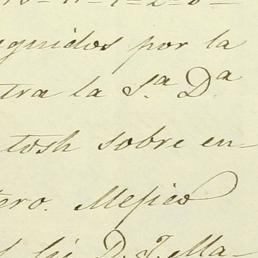 eguidos por la
tra la S.ª D.ª
tosh sobre en-
tero. Mejico
D. J. Ma-